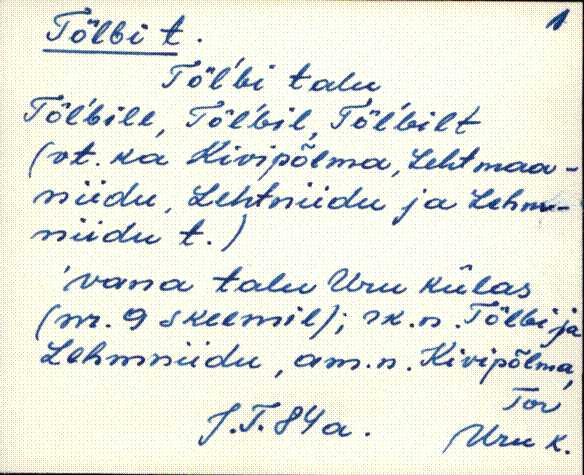 1
Tõlbi t.
Tõl'bi talu
Tõl'bile, Tõl'bil, Tõl'bilt
(vt. ka Kivipõlma, Lehtmaa-
niidu, Lehtniidu ja Lehm-
niidu t.)
'vana talu Uru külas
(nr. 9 skeemil); rk.n. Tõlbi ja
Lehmniidu, am.n. Kivipõlma,
Tor
J.T. 84a. Uru k.